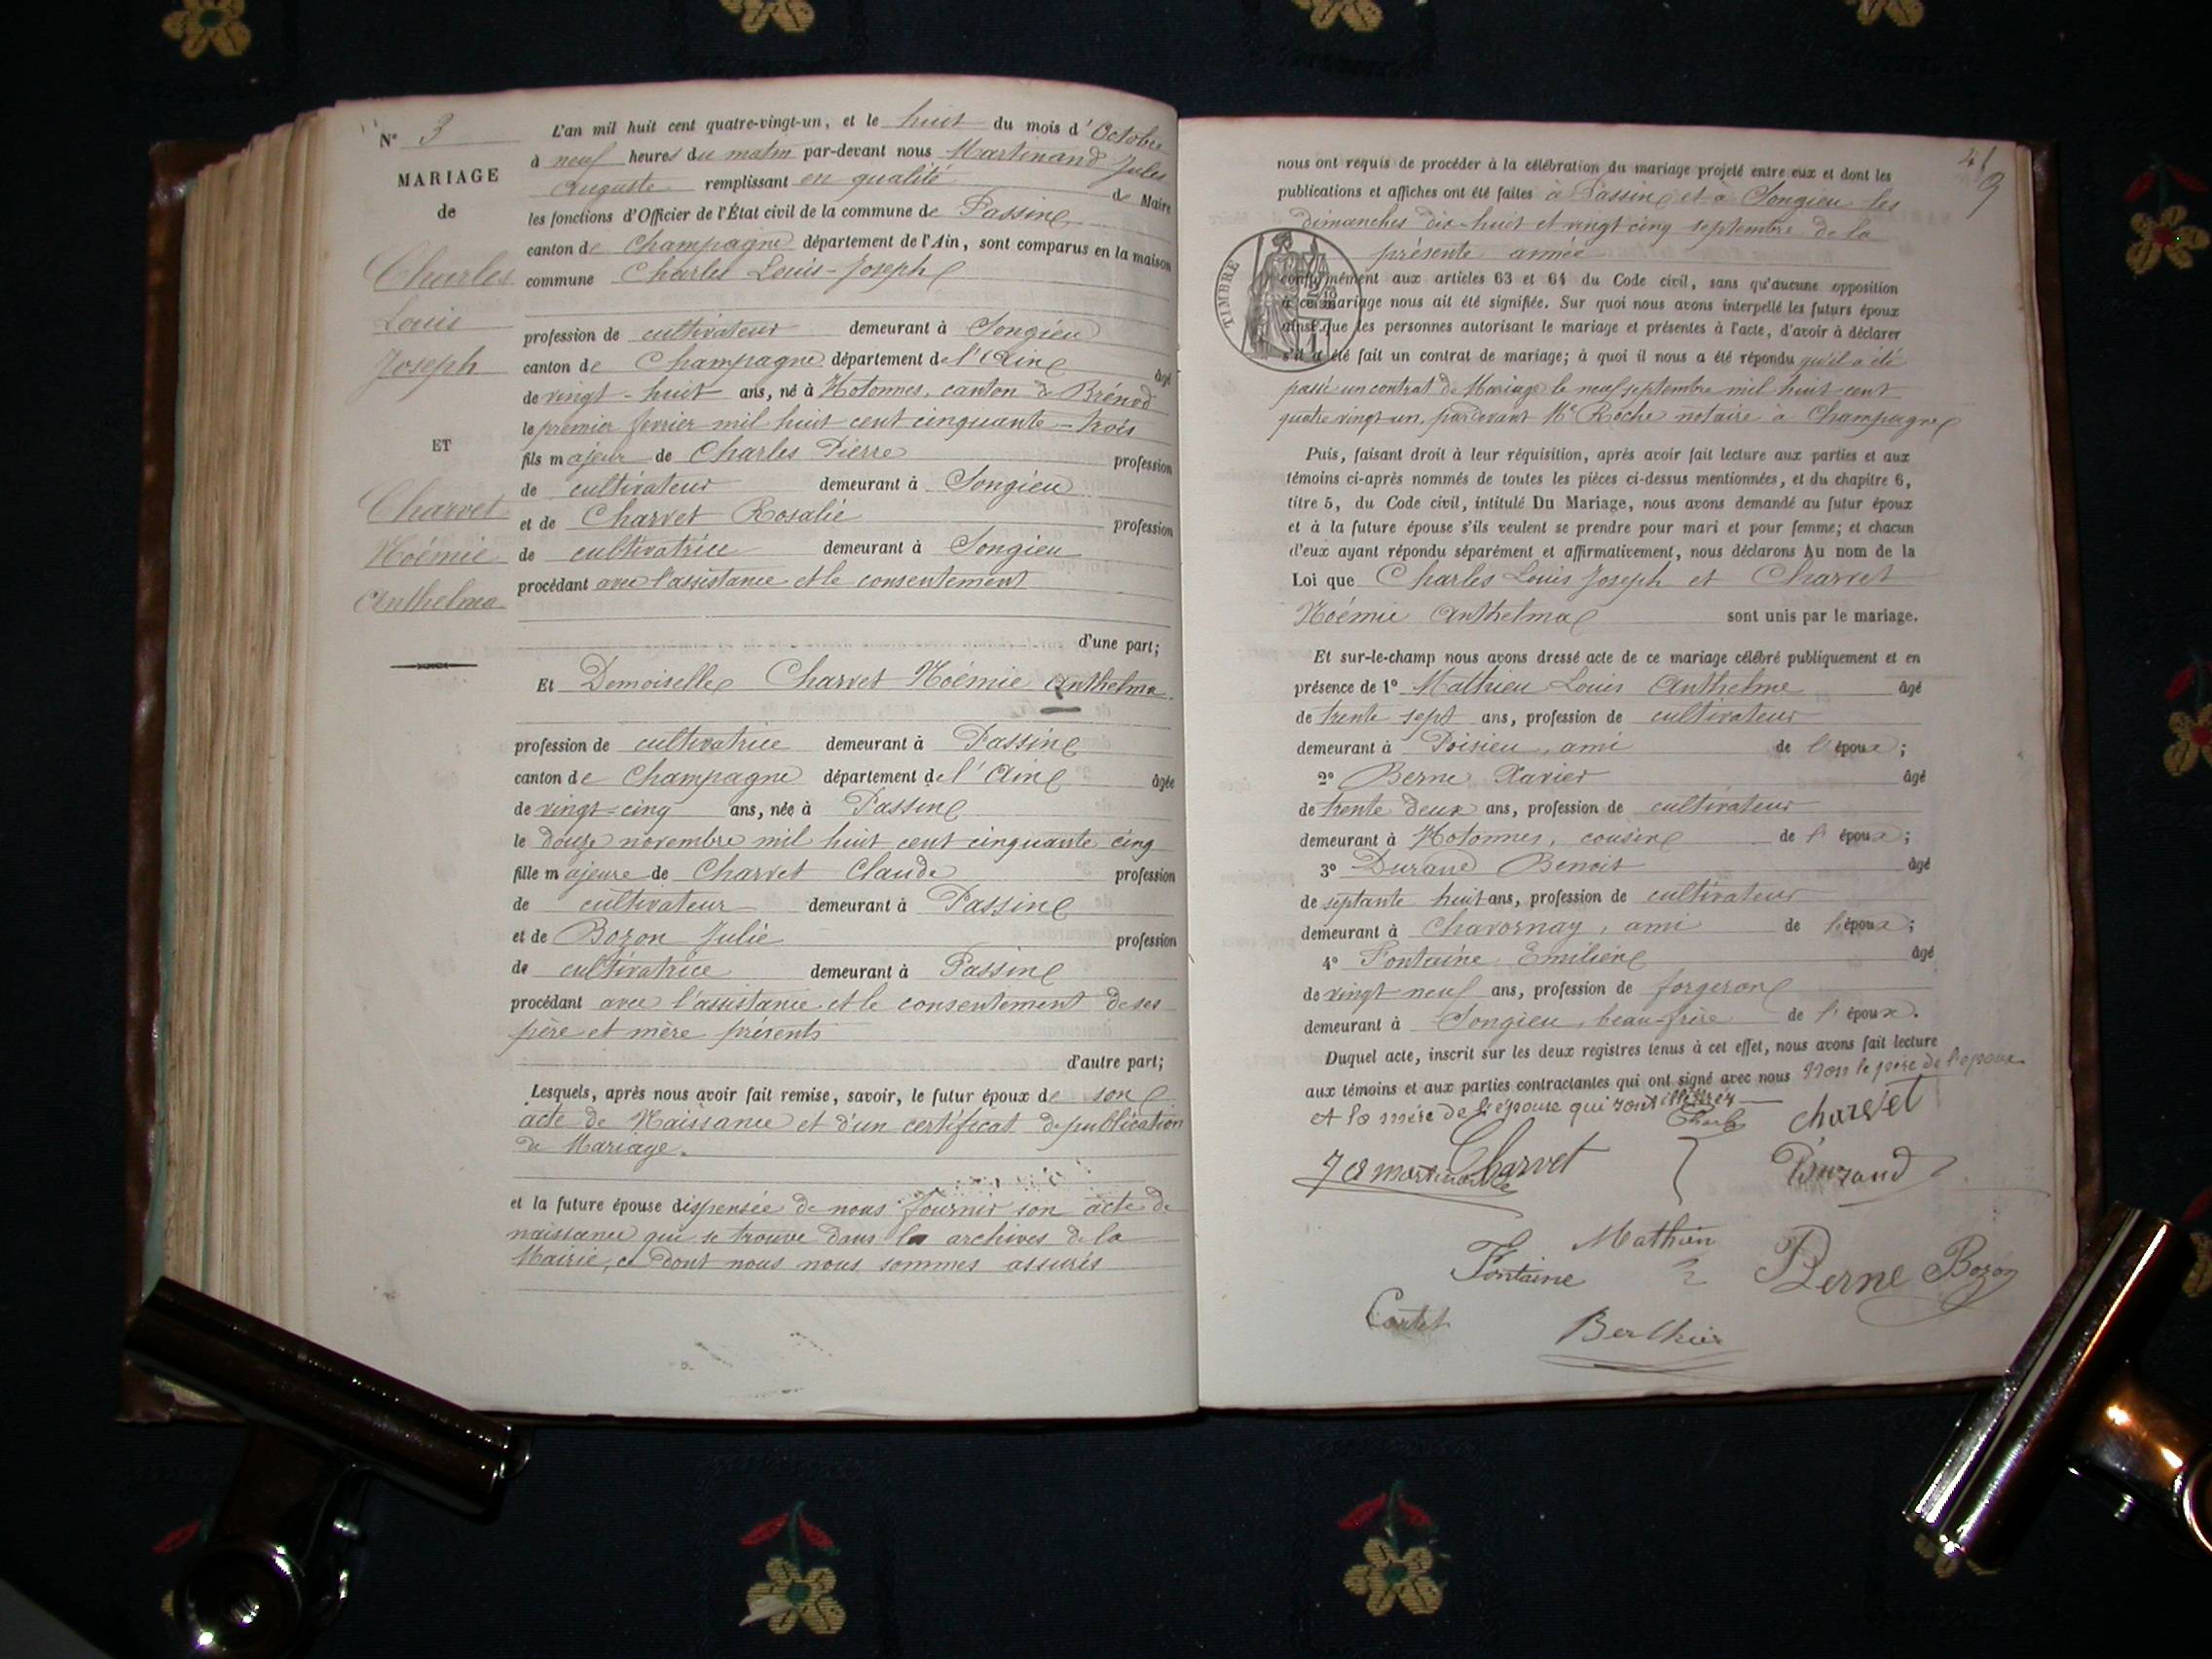 N° 3
MARIAGE
de
Charles
Louis
Joseph
ET
Charvet
Noémie
Anthelma
L'an mil huit cent quatre-vingt-un, et le huit du mois d'Octobre
à neuf heures du matin par-devant nous Martinand Jules
Auguste remplissant en qualité de Maire
les fonctions d'Officier de l'État civil de la commune de Passin
canton de Champagne département de l'Ain, sont comparus en la maison
commune Charles Louis-Joseph
profession de cultivateur demeurant à Songieu
canton de Champagne département de l'Ain âgé
de vingt-huit ans, né à Hotonnes, canton de Brénod
le premier février mil huit cent cinquante-trois
fils majeur de Charles Pierre profession
de cultivateur demeurant à Songieu
et de Charvet Rosalie profession
de cultivatrice demeurant à Songieu
procédant avec l'assistance et le consentement
d'une part;
Et Demoiselle Charvet Noémie Anthelma.
profession de cultivatrice demeurant à Passin
canton de Champagne département de l'Ain âgée
de vingt-cinq ans, née à Passin
le douze novembre mil huit cent cinquante cinq
fille majeure de Charvet Claude profession
de cultivateur demeurant à Passin
et de Bozon Julie profession
de cultivatrice demeurant à Passin
procédant avec l'assistance et le consentement de ses
père et mère présents
d'autre part;
Lesquels, après nous avoir fait remise, savoir, le futur époux de son
acte de Naissance et d'un certificat de publication
de Mariage.
et la future épouse dispensée de nous fournir son acte de
naissance qui se trouve dans les archives de la
Mairie, ce dont nous nous sommes assurés
41
9
nous ont requis de procéder à la célébration du mariage projeté entre eux et dont les
publications et affiches ont été faites à Passin et à Songieu les
dimanches dix-huit et vingt cinq septembre de la
présente année
TIMBRE
conformément aux articles 63 et 64 du Code civil, sans qu'aucune opposition
à ce mariage nous ait été signifiée. Sur quoi nous avons interpellé les futurs époux
ainsi que les personnes autorisant le mariage et présentes à l'acte, d'avoir à déclarer
s'il a été fait un contrat de mariage; à quoi il nous a été répondu qu'il a été
passé un contrat de Mariage le neuf septembre mil huit cent
quatre vingt-un, pardevant Me Roche notaire à Champagne
Puis, faisant droit à leur réquisition, après avoir fait lecture aux parties et aux
témoins ci-après nommés de toutes les pièces ci-dessus mentionnées, et du chapitre 6,
titre 5, du Code civil, intitulé Du Mariage, nous avons demandé au futur époux
et à la future épouse s'ils veulent se prendre pour mari et pour femme; et chacun
d'eux ayant répondu séparément et affirmativement, nous déclarons Au nom de la
Loi que Charles Louis Joseph et Charvet
Noémie Anthelma sont unis par le mariage.
Et sur-le-champ nous avons dressé acte de ce mariage célébré publiquement et en
présence de 1° Mathieu Louis Anthelme âgé
de trente sept ans, profession de cultivateur
demeurant à Poisieu, ami de l'époux;
2° Berne Xavier âgé
de trente deux ans, profession de cultivateur
demeurant à Hotonnes, cousin de l'époux;
3° Durand Benoit âgé
de septante huit ans, profession de cultivateur
demeurant à Chavornay, ami de l'époux;
4° Fontaine Emilien âgé
de vingt neuf ans, profession de forgeron
demeurant à Songieu, beau-frère de l'époux.
Duquel acte, inscrit sur les deux registres tenus à cet effet, nous avons fait lecture
aux témoins et aux parties contractantes qui ont signé avec nous Non le père de l'époux
et la mère de l'épouse qui sont illétrés
Charles charvet
J A Martinand Charvet Durand
Mathieu
Fontaine Berne Bozon
Berthier